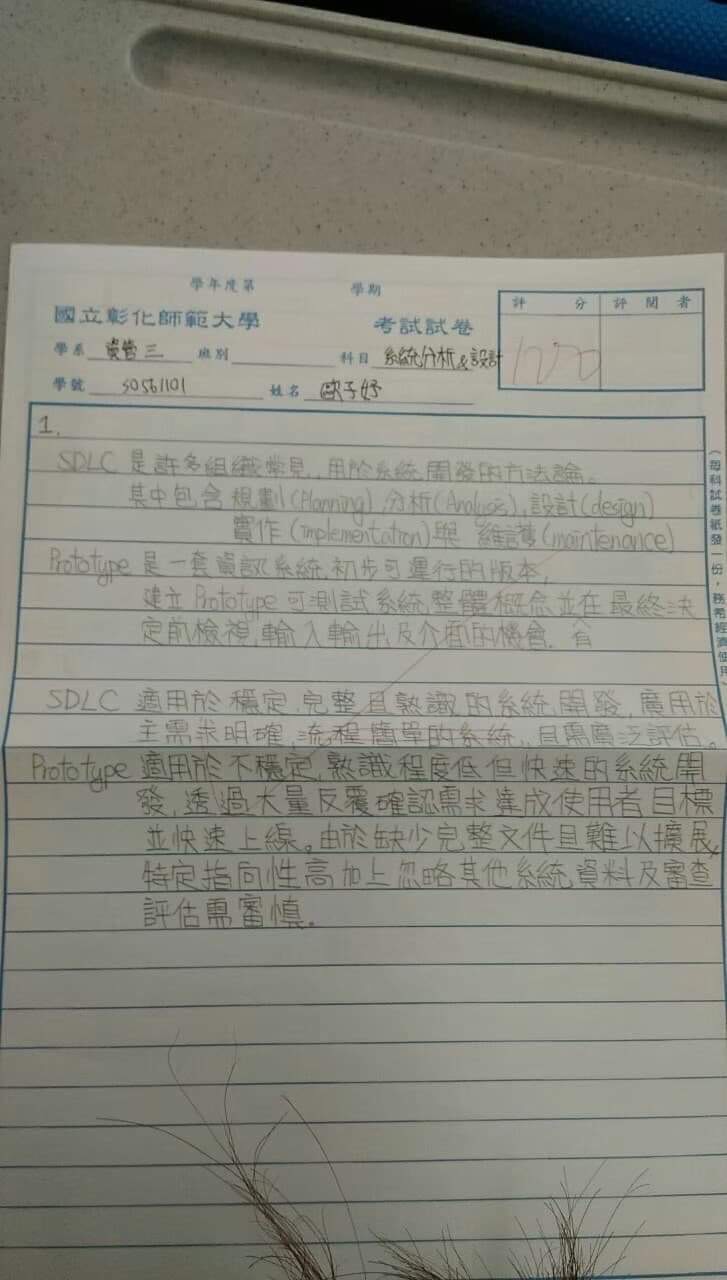 學年度第 學期
國立彰化師範大學 考試試卷
評分 評閱者
100
學系 資管三 班別 科目 系統分析&設計
學號 S0561101 姓名 歐子妤
(每科試卷紙發一份,務希經濟使用)
1.
SDLC 是許多組織常見,用於系統開發的方法論。
其中包含規劃(Planning),分析(Analysis),設計(design)
實作(implementation)與 維護(maintenance)
Prototype 是一套資訊系統初步可運行的版本,
建立 Prototype 可測試系統整體概念並在最終決
定前檢視,輸入輸出及介面的機會.
SDLC 適用於穩定、完整且熟識的系統開發,廣用於
主需求明確,流程簡單的系統,且需廣泛評估。
Prototype 適用於不穩定,熟識程度低但快速的系統開
發,透過大量反覆確認需求達成使用者目標
並快速上線。由於缺少完整文件且難以擴展,
特定指向性高加上忽略其他系統資料及審查
評估需審慎。